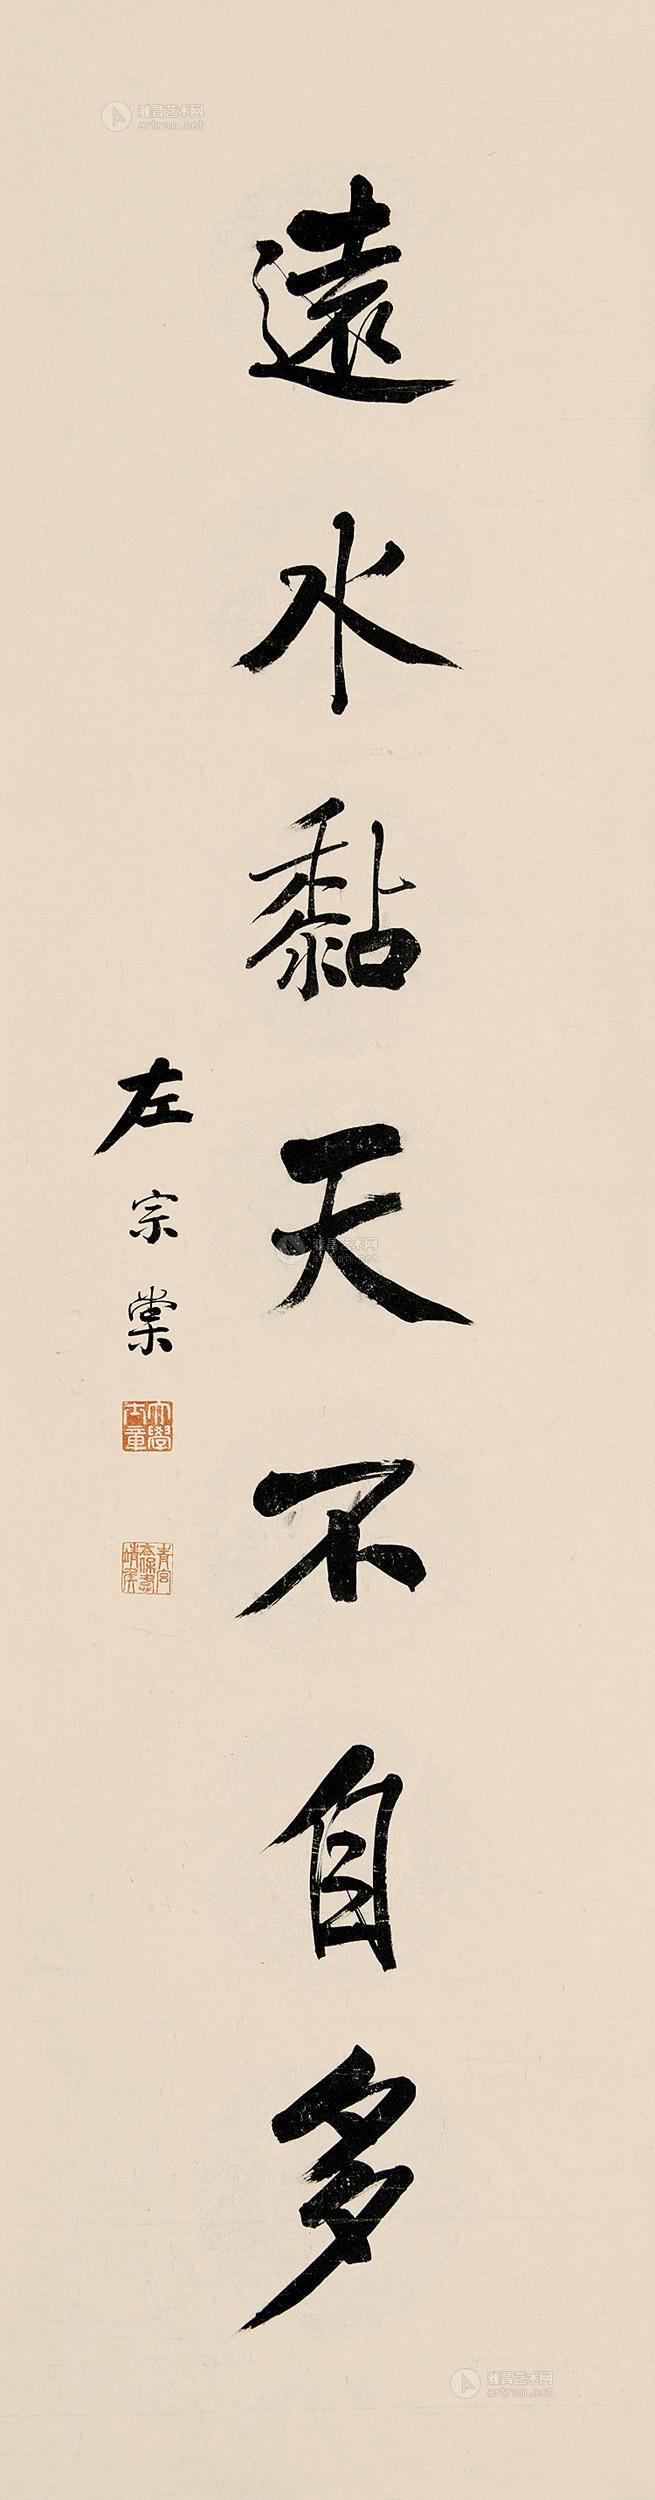 遠水黏天不自多
左宗棠
大學士章
青宮太保恪靖侯
雅昌艺术网
artron.net
雅昌艺术网
artron.net
雅昌艺术网
artron.net